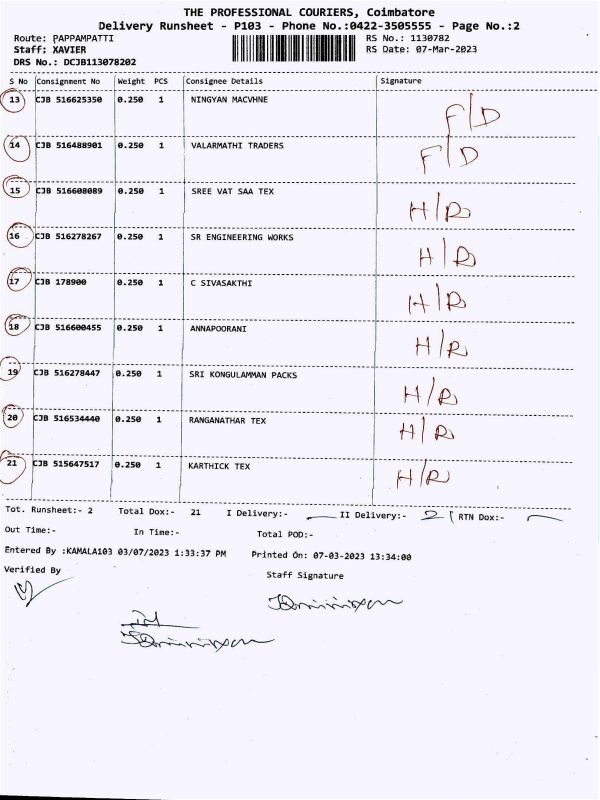 THE PROFESSIONAL COURIERS, Coimbatore
Delivery Runsheet - P103 - Phone No.:0422-3505555 - Page No.:2
Route: PAPPAMPATTI RS No.: 1130782
Staff: XAVIER RS Date: 07-Mar-2023
DRS No.: DCJB113078202
S No Consignment No Weight PCS Consignee Details Signature
13 CJB 516625350 0.250 1 NINGYAN MACVHNE F/D
14 CJB 516488901 0.250 1 VALARMATHI TRADERS F/D
15 CJB 516608089 0.250 1 SREE VAT SAA TEX H/R
16 CJB 516278267 0.250 1 SR ENGINEERING WORKS H/R
17 CJB 178900 0.250 1 C SIVASAKTHI H/R
18 CJB 516600455 0.250 1 ANNAPOORANI H/R
19 CJB 516278447 0.250 1 SRI KONGULAMMAN PACKS H/R
20 CJB 516534440 0.250 1 RANGANATHAR TEX H/R
21 CJB 515647517 0.250 1 KARTHICK TEX H/R
Tot. Runsheet:- 2 Total Dox:- 21 I Delivery:- II Delivery:- 21 RTN Dox:-
Out Time:- In Time:- Total POD:-
Entered By :KAMALA103 03/07/2023 1:33:37 PM Printed On: 07-03-2023 13:34:00
Verified By Staff Signature